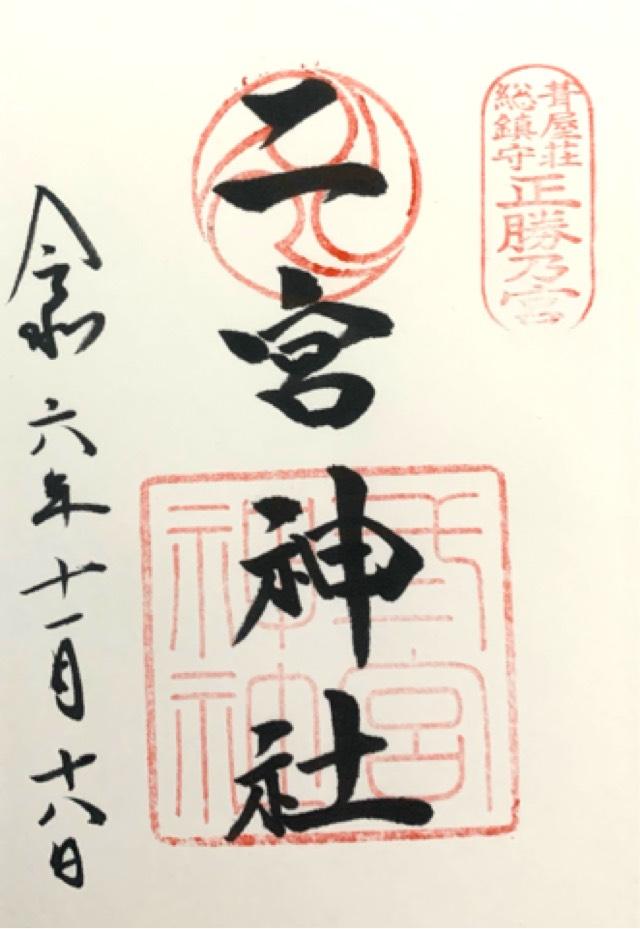 葺屋荘
総鎮守
正勝乃宮
二宮神社
令和六年十一月十八日